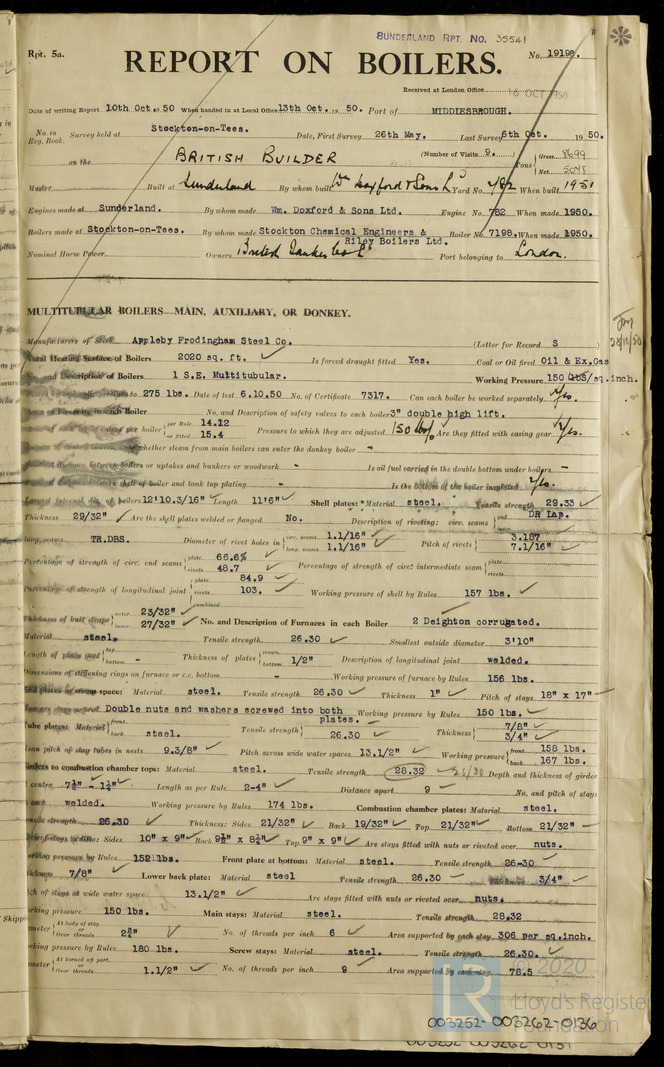 SUNDERLAND RPT. NO. 35541
Rpt. 5a.
No. 19198.
REPORT ON BOILERS.
Received at London Office 16 OCT 1950
Date of writing Report 10th Oct. 19 50 When handed in at Local Office 13th Oct. 19 50. Port of MIDDLESBROUGH.
No. in Reg. Book. Survey held at Stockton-on-Tees. Date, First Survey 26th May. Last Survey 6th Oct. 19 50.
on the BRITISH BUILDER (Number of Visits 9.) Tons Gross 8699 Net
Master Built at Sunderland By whom built Wm Doxford & Sons Ld Yard No. 782 When built 1951
Engines made at Sunderland. By whom made Wm. Doxford & Sons Ltd. Engine No. 782 When made 1950.
Boilers made at Stockton-on-Tees. By whom made Stockton Chemical Engineers & Riley Boilers Ltd. Boiler No. 7198. When made 1950.
Nominal Horse Power Owners British Tanker Co Ld Port belonging to London.
MULTITUBULAR BOILERS—MAIN, AUXILIARY, OR DONKEY.
Manufacturers of Steel Appleby Frodingham Steel Co. (Letter for Record S
Total Heating Surface of Boilers 2020 sq. ft. Is forced draught fitted Yes. Coal or Oil fired Oil & Ex.Gas
No. and Description of Boilers 1 S.E. Multitubular. Working Pressure 150 lbs/sq.inch.
to 275 lbs. Date of test 6.10.50 No. of Certificate 7317. Can each boiler be worked separately Yes.
Area of Firegrate in each Boiler No. and Description of safety valves to each boiler 3" double high lift.
per boiler per Rule. 14.12 as fitted. 15.4 Pressure to which they are adjusted 150 lbs Are they fitted with easing gear Yes.
whether steam from main boilers can enter the donkey boiler -
between boilers or uptakes and bunkers or woodwork - Is oil fuel carried in the double bottom under boilers -
between shell of boiler and tank top plating - Is the bottom of the boiler insulated Yes.
Largest internal dia. of boilers 12'10.3/16" Length 11'6" Shell plates: Material steel. Tensile strength 29.33
Thickness 29/32" Are the shell plates welded or flanged No. Description of riveting: circ. seams end DR Lap. inter.
long. seams TR.DBS. Diameter of rivet holes in circ. seams 1.1/16" long. seams 1.1/16" Pitch of rivets 3.187 7.1/16"
Percentage of strength of circ. end seams plate. 66.6% rivets 48.7 Percentage of strength of circumf. intermediate seam plate. rivets
Percentage of strength of longitudinal joint plate. 84.9 rivets 103. combined Working pressure of shell by Rules 157 lbs.
Thickness of butt straps outer 23/32" inner 27/32" No. and Description of Furnaces in each Boiler 2 Deighton corrugated.
Material steel. Tensile strength 26.30 Smallest outside diameter 3'10"
Length of plain part top bottom - Thickness of plates crown bottom 1/2" Description of longitudinal joint welded.
Dimensions of stiffening rings on furnace or c.c. bottom - Working pressure of furnace by Rules 156 lbs.
End plates in steam space: Material steel. Tensile strength 26.30 Thickness 1" Pitch of stays 18" x 17"
Double nuts and washers screwed into both plates. Working pressure by Rules 150 lbs.
Tube plates: Material front. back steel. Tensile strength 26.30 Thickness 7/8" 3/4"
Mean pitch of stay tubes in nests 9.3/8" Pitch across wide water spaces 13.1/2" Working pressure front 158 lbs. back 167 lbs.
Girders to combustion chamber tops: Material steel. Tensile strength 28.32 26/30 Depth and thickness of girder
centre 7½" - 1¼" Length as per Rule 2-4" Distance apart 9 No. and pitch of stays
each welded. Working pressure by Rules 174 lbs. Combustion chamber plates: Material steel.
Tensile strength 26.30 Thickness: Sides 21/32" Back 19/32" Top 21/32" Bottom 21/32"
Pitch of stays to ditto: Sides 10" x 9" Back 9½" x 8¾" Top 9" x 9" Are stays fitted with nuts or riveted over nuts.
Working pressure by Rules 152 lbs. Front plate at bottom: Material steel. Tensile strength 26-30
Thickness 7/8" Lower back plate: Material steel Tensile strength 26.30 Thickness 3/4"
Pitch of stays at wide water space 13.1/2" Are stays fitted with nuts or riveted over nuts.
Working pressure 150 lbs. Main stays: Material steel. Tensile strength 28.32
Diameter At body of stay or Over threads 2¾" No. of threads per inch 6 Area supported by each stay 306 per sq.inch.
Working pressure by Rules 180 lbs. Screw stays: Material steel. Tensile strength 26.30.
Diameter At turned off part. or Over threads 1.1/2" No. of threads per inch 9 Area supported by each stay 78.5
© 2020
Lloyd's Register
Foundation
003252-003262-0136